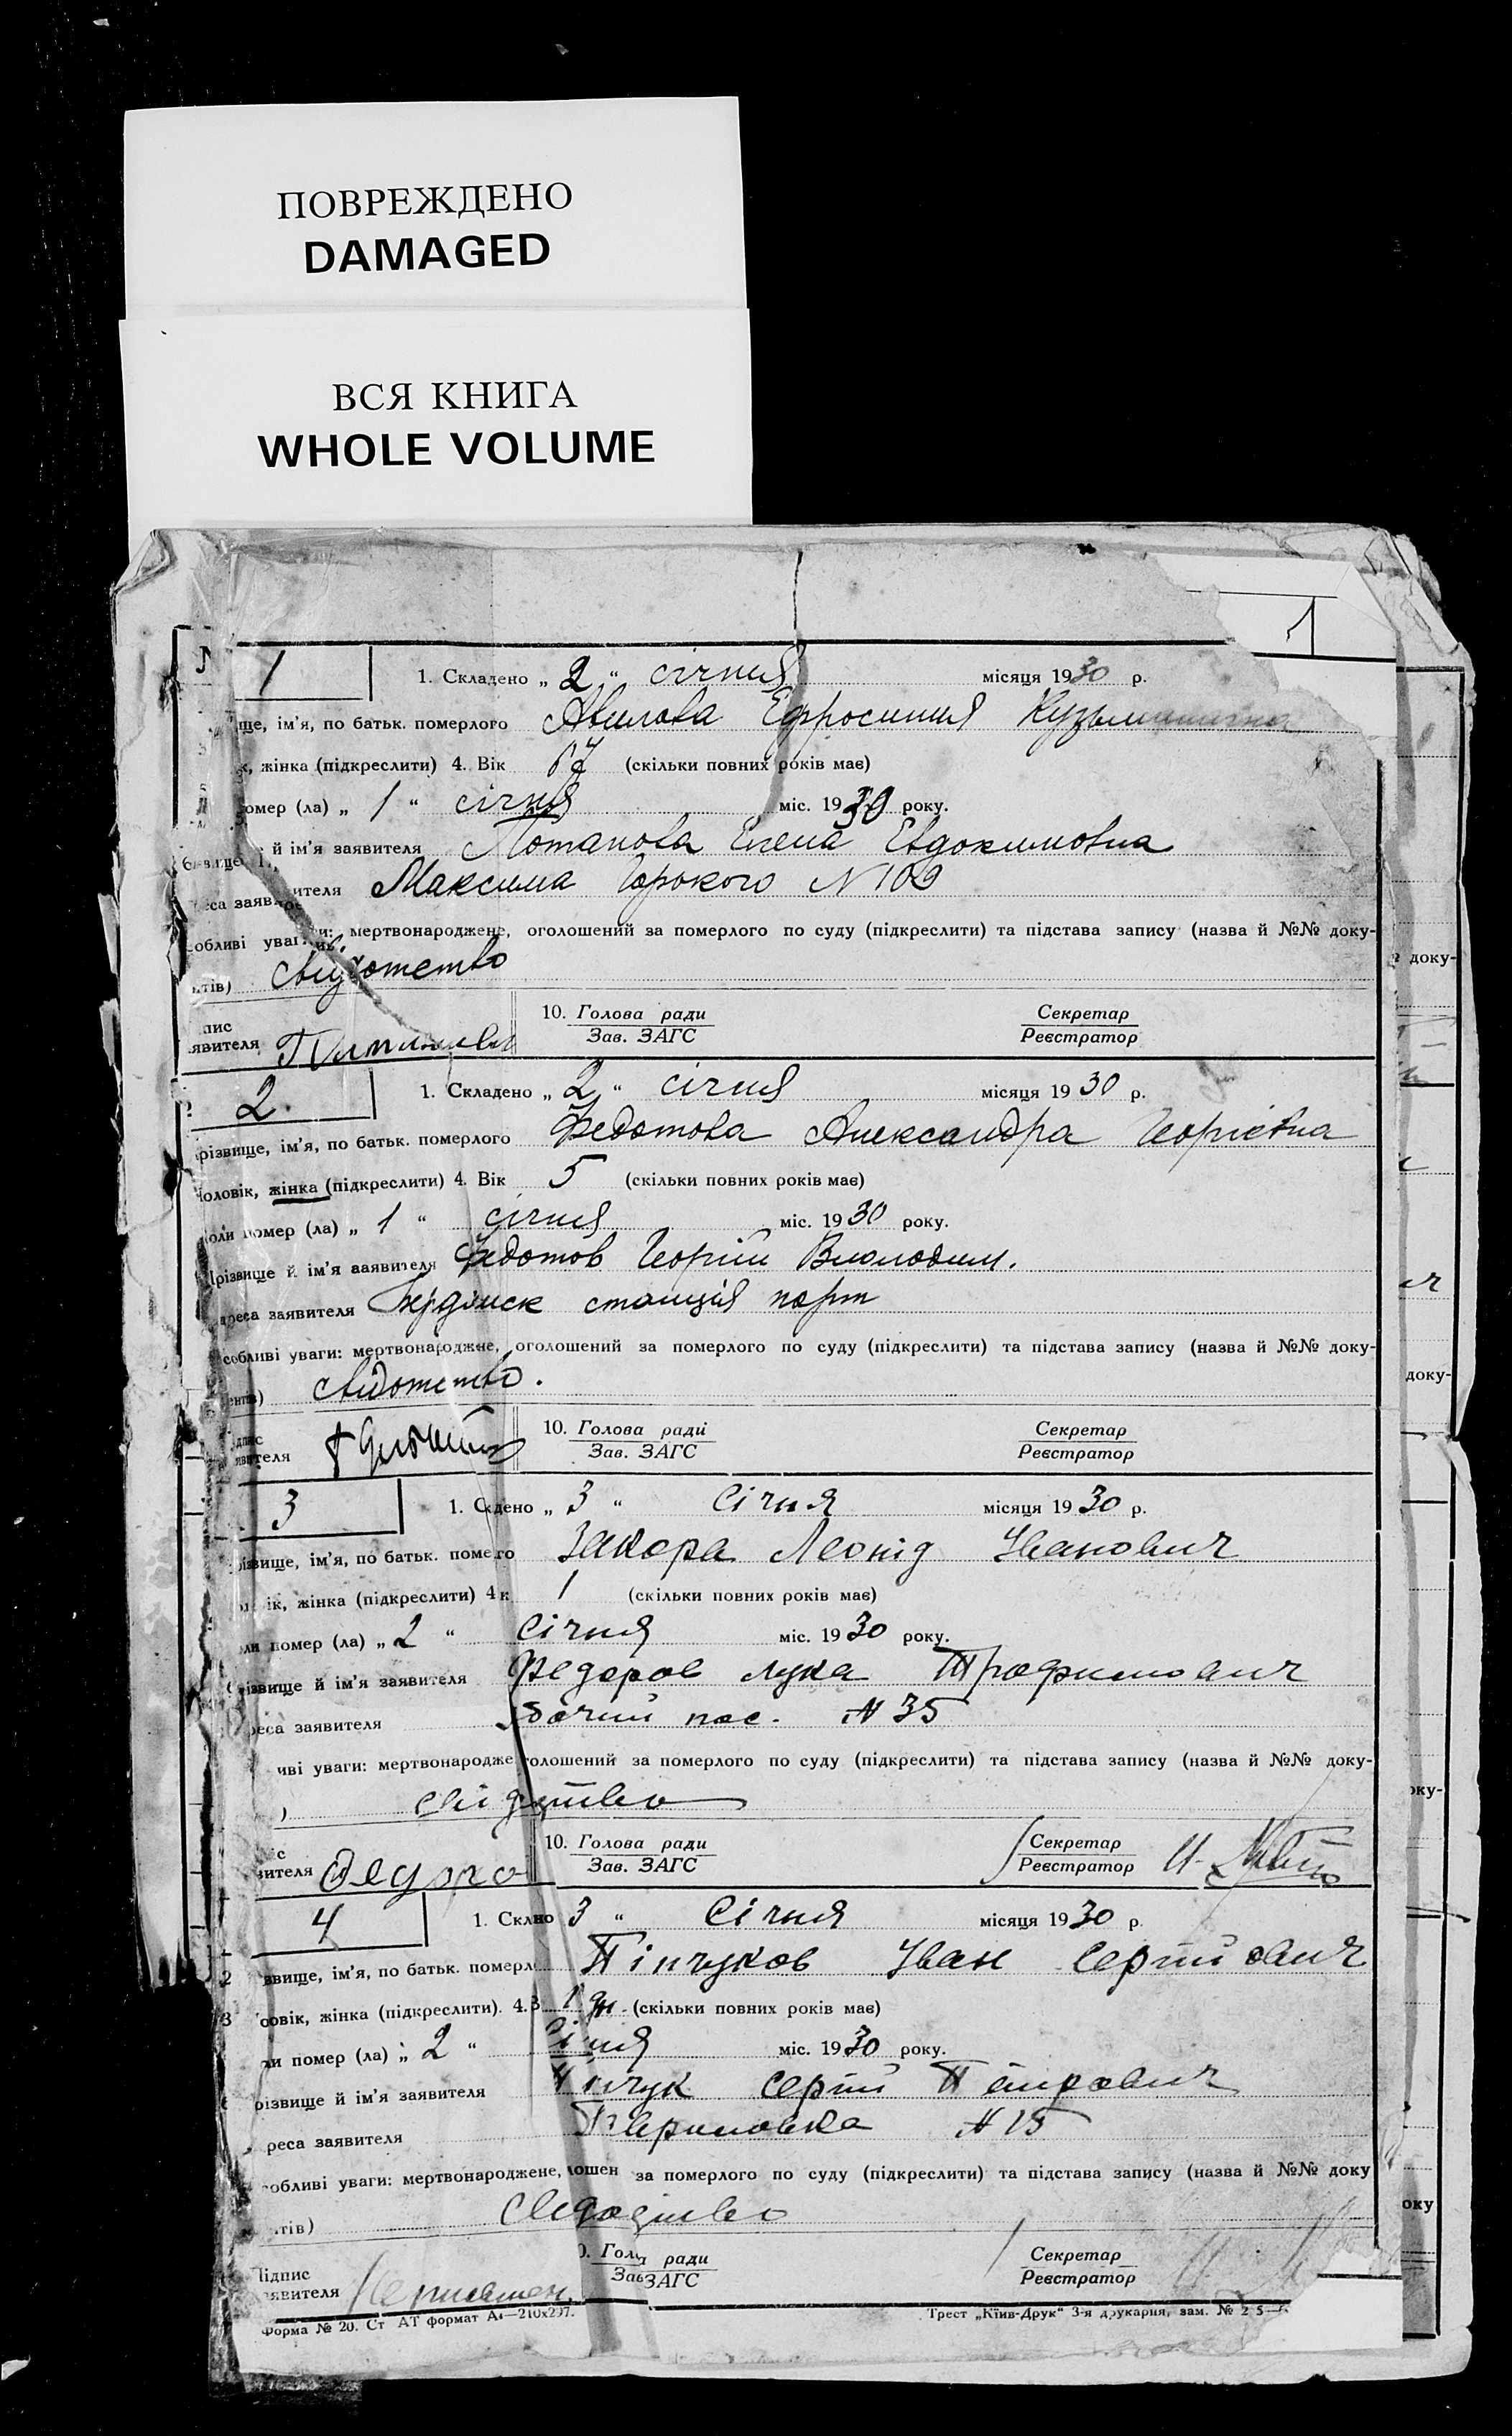 ПОВРЕЖДЕНО
DAMAGED
ВСЯ КНИГА
WHOLE VOLUME
1
1
1. Складено „ 2 “ січня місяця 1930 р.
ще, ім'я, по батьк. померлого Авилова Ефросиния Кузьминична
к, жінка (підкреслити) 4. Вік 67 (скільки повних років має)
омер (ла) „ 1 “ січня міс. 1930 року.
й ім'я заявителя Потапова Елена Евдокимовна
еса заявителя Максима Горького N 109
собливі уваги: мертвонароджене, оголошений за померлого по суду (підкреслити) та підстава запису (назва й №№ доку-
нтів) свидотство
пис
явителя
10. Голова ради
Зав. ЗАГС
Секретар
Реєстратор
2.
1. Складено „ 2 “ січня місяця 1930 р.
різвище, ім'я, по батьк. померлого Федотова Александра Георгієвна
Чоловік, жінка (підкреслити) 4. Вік 5 (скільки повних років має)
оли помер (ла) „ 1 “ січня міс. 1930 року.
Прізвище й ім'я заявителя Федотов Георгій
дреса заявителя Бердянск станція порт
собливі уваги: мертвонароджене, оголошений за померлого по суду (підкреслити) та підстава запису (назва й №№ доку-
ентів) свідотство.
дпис
явителя
10. Голова ради
Зав. ЗАГС
Секретар
Реєстратор
3
1. Скдено „ 3 “ Січня місяця 1930 р.
різвище, ім'я, по батьк. помего Закора Леонід Иванович
ік, жінка (підкреслити) 4 к 1 (скільки повних років має)
ли помер (ла) „ 2 “ Січня міс. 1930 року.
різвище й ім'я заявителя Федоров Лука Трофимович
реса заявителя бочий пос. N 35
иві уваги: мертвонародже голошений за померлого по суду (підкреслити) та підстава запису (назва й №№ доку-
) свідоцтво
с
вителя Федоро
10. Голова ради
Зав. ЗАГС
Секретар
Реєстратор
4
1. Склно 3 “ Січня місяця 1930 р.
ізвище, ім'я, по батьк. померл Пінчуков Иван Сергійович
овік, жінка (підкреслити). 4. В 1 дн. (скільки повних років має)
ли помер (ла) „ 2 “ Січня міс. 1930 року.
різвище й ім'я заявителя Сергій Петрович
реса заявителя N 15
собливі уваги: мертвонароджене, лошен за померлого по суду (підкреслити) та підстава запису (назва й №№ доку
нтів) Свідоцтво
Підпис
заявителя
0. Голова ради
Зав ЗАГС
Секретар
Реєстратор
Форма № 20. Ст АТ формат А4—210х297.
Трест „Київ-Друк“ 3-я друкарня, зам. №